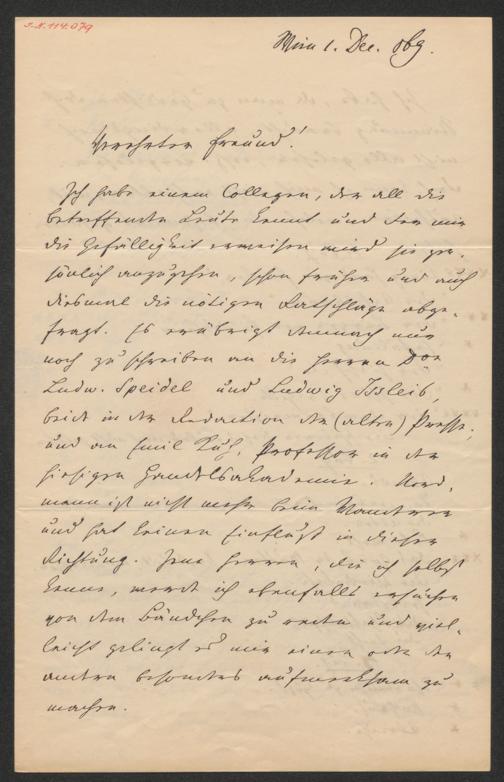 I.N. 114.079
Wien 1. Dec. 869.
Verehrter Freund!
Ich habe einem Collegen, der all die
betreffenden Leute kennt und der mir
die Gefälligkeit erweisen wird sie per-
sönlich anzugehen, schon früher und auch
diesmal die nötigen Ratschläge abge-
fragt. Es erübrigt demnach nur
noch zu schreiben an die Herren Doc
Ludw. Speidel und Ludwig Issleib,
beide in der Redaction der (alten) Presse;
und an Emil Kuh, Professor in der
hiesigen Handelsakademie. Nord-
mann ist nicht mehr beim Wanderer
und hat keinen Einfluß in dieser
Richtung. Jene Herren, die ich selbst
kenne, werde ich ebenfalls ersuchen
von dem Bändchen zu reden und viel-
leicht gelingt es mir einen oder den
andern besonders aufmerksam zu
machen.